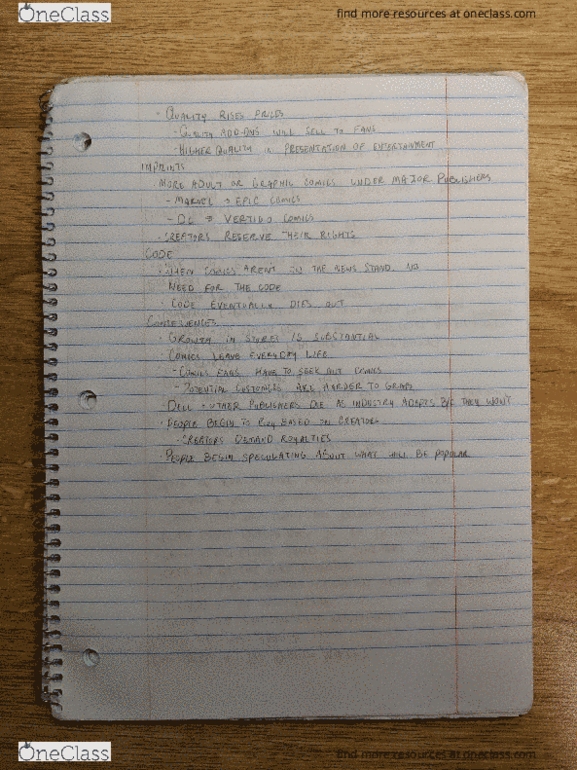 OneClass
find more resources at oneclass.com
· QUALITY RISES PRIZES
- QUALITY ADD-ONS WILL SELL TO FANS
- HIGHER QUALITY IN PRESENTATION OF ENTERTAINMENT
IMPRINTS
MORE ADULT OR GRAPHIC COMICS UNDER MAJOR PUBLISHERS
- MARVEL → EPIC COMICS
- DC → VERTIGO COMICS
· CREATORS RESERVE THEIR RIGHTS
CODE
· WHEN COMICS ARENT ON THE NEWS STAND, NO
NEED FOR THE CODE
· CODE EVENTUALLY DIES OUT
CONSEQUENCES
· GROWTH IN STORES IS SUBSTANTIAL
COMICS LEAVE EVERYDAY LIFE
- COMICS FANS HAVE TO SEEK OUT COMICS
- POTENTIAL CUSTOMERS ARE HARDER TO GRAB
DELL + OTHER PUBLISHERS DIE AS INDUSTRY ADAPTS B/C THEY WON'T
· PEOPLE BEGIN TO BUY BASED ON CREATORS
- CREATORS DEMAND ROYALTIES
· PEOPLE BEGIN SPECULATING ABOUT WHAT WILL BE POPULAR
OneClass
find more resources at oneclass.com